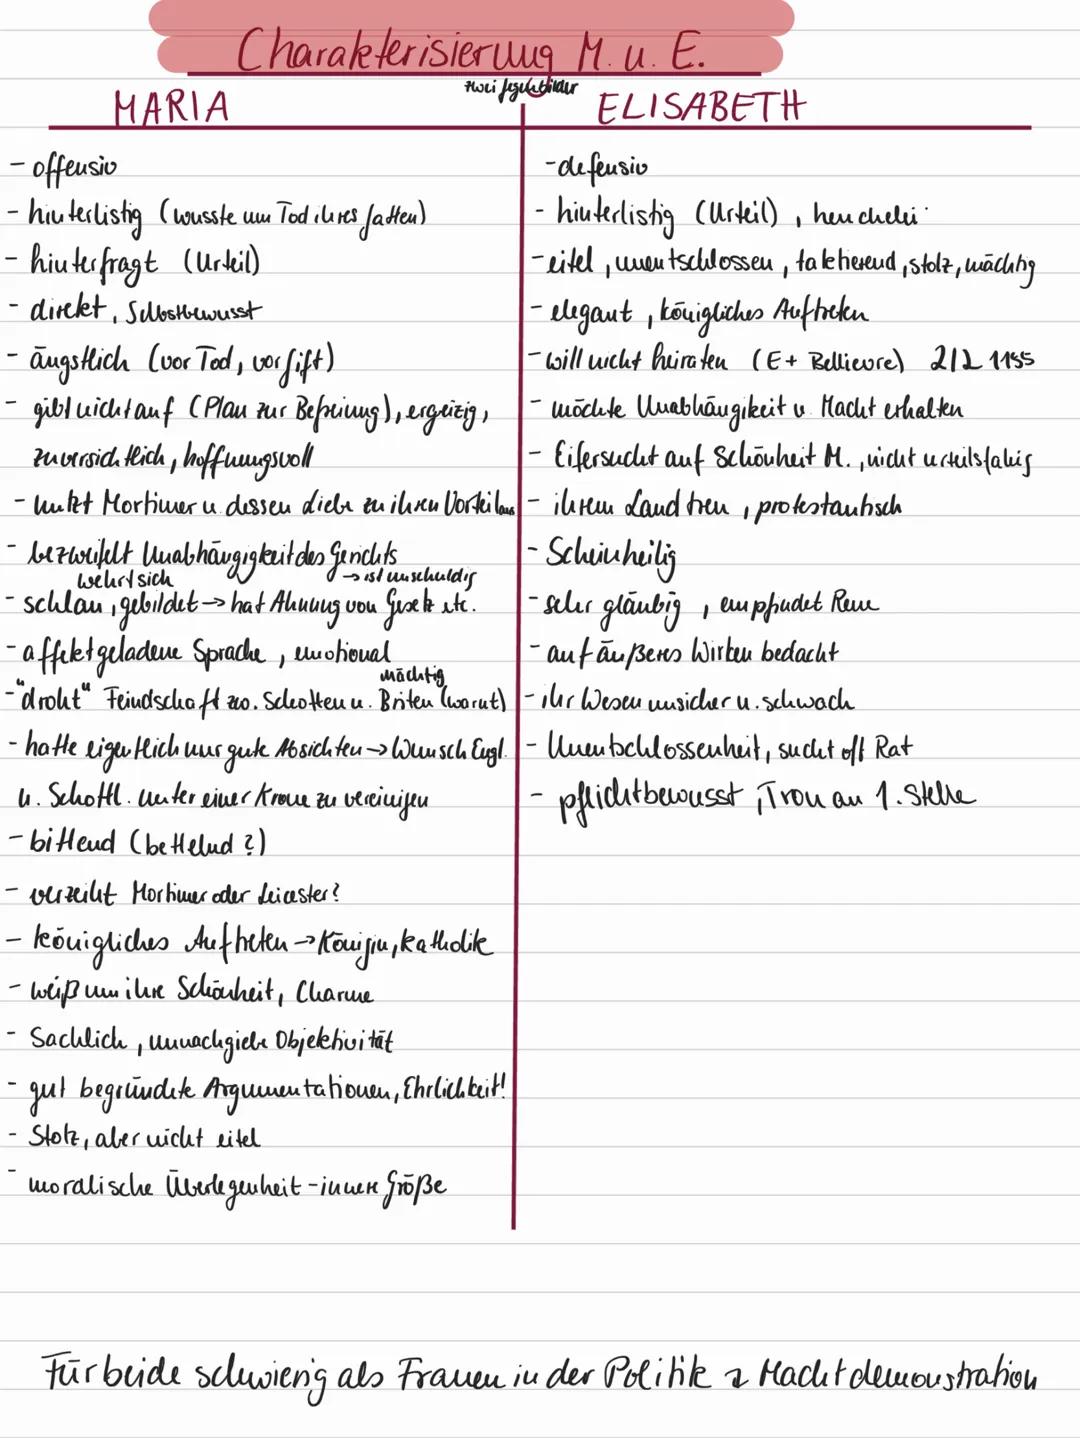 Charakterisierung M. u. E.
zwei Gegenbilder
MARIA
- offensiv
- hinterlistig (wusste um Tod ihres Gatten)
- hinterfragt (Urteil)
- direkt, Selbstbewusst
- ängstlich (vor Tod, vor Gift)
- gibt nicht auf (Plan zur Befreiung), ergeizig,
zuversichtlich, hoffnungsvoll
- nutzt Mortimer u. dessen Liebe zu ihren Vorteil aus
- bezweifelt Unabhängigkeit des Gerichts
wehrt sich → ist unschuldig
- schlau, gebildet → hat Ahnung von Gesetz etc.
- affektgeladene Sprache, emotional
mächtig
- "droht" Feindschaft zw. Schotten u. Briten (warnt)
- hatte eigentlich nur gute Absichten → Wunsch Engl.
u. Schottl. unter einer Krone zu vereinigen
- bittend (bettelnd?)
- verzeiht Mortimer oder Leicester?
- königliches Auftreten → Königin, katholik
- weiß um ihre Schönheit, Charme
- Sachlich, unnachgiebe Objektivität
- gut begründete Argumentationen, Ehrlichkeit!
- Stolz, aber nicht eitel
- moralische Überlegenheit - innere Größe
ELISABETH
- defensiv
- hinterlistig (Urteil), heuchelei
- eitel, unentschlossen, taktierend, stolz, mächtig
- elegant, königliches Auftreten
- will nicht heiraten (E + Bellievre) 2/2 1155
- möchte Unabhängikeit u. Macht erhalten
- Eifersucht auf Schönheit M., nicht urteilsfähig
- ihrem Land treu, protestantisch
- Scheinheilig
- sehr gläubig, empfindet Reue
- auf äußeres Wirken bedacht
- ihr Wesen unsicher u. schwach
- Unentschlossenheit, sucht oft Rat
- pflichtbewusst, Tron an 1. Stelle
Für beide schwierig als Frauen in der Politik Machtdemonstration